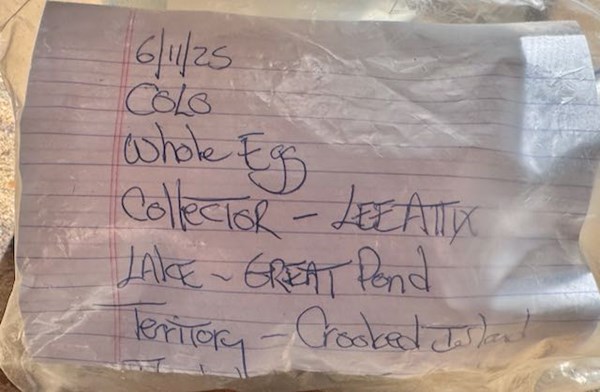 6/11/25
COLO
Whole Egg
Collector - LEE ATTIX
LAKE - GREAT Pond
Territory - Crooked Island